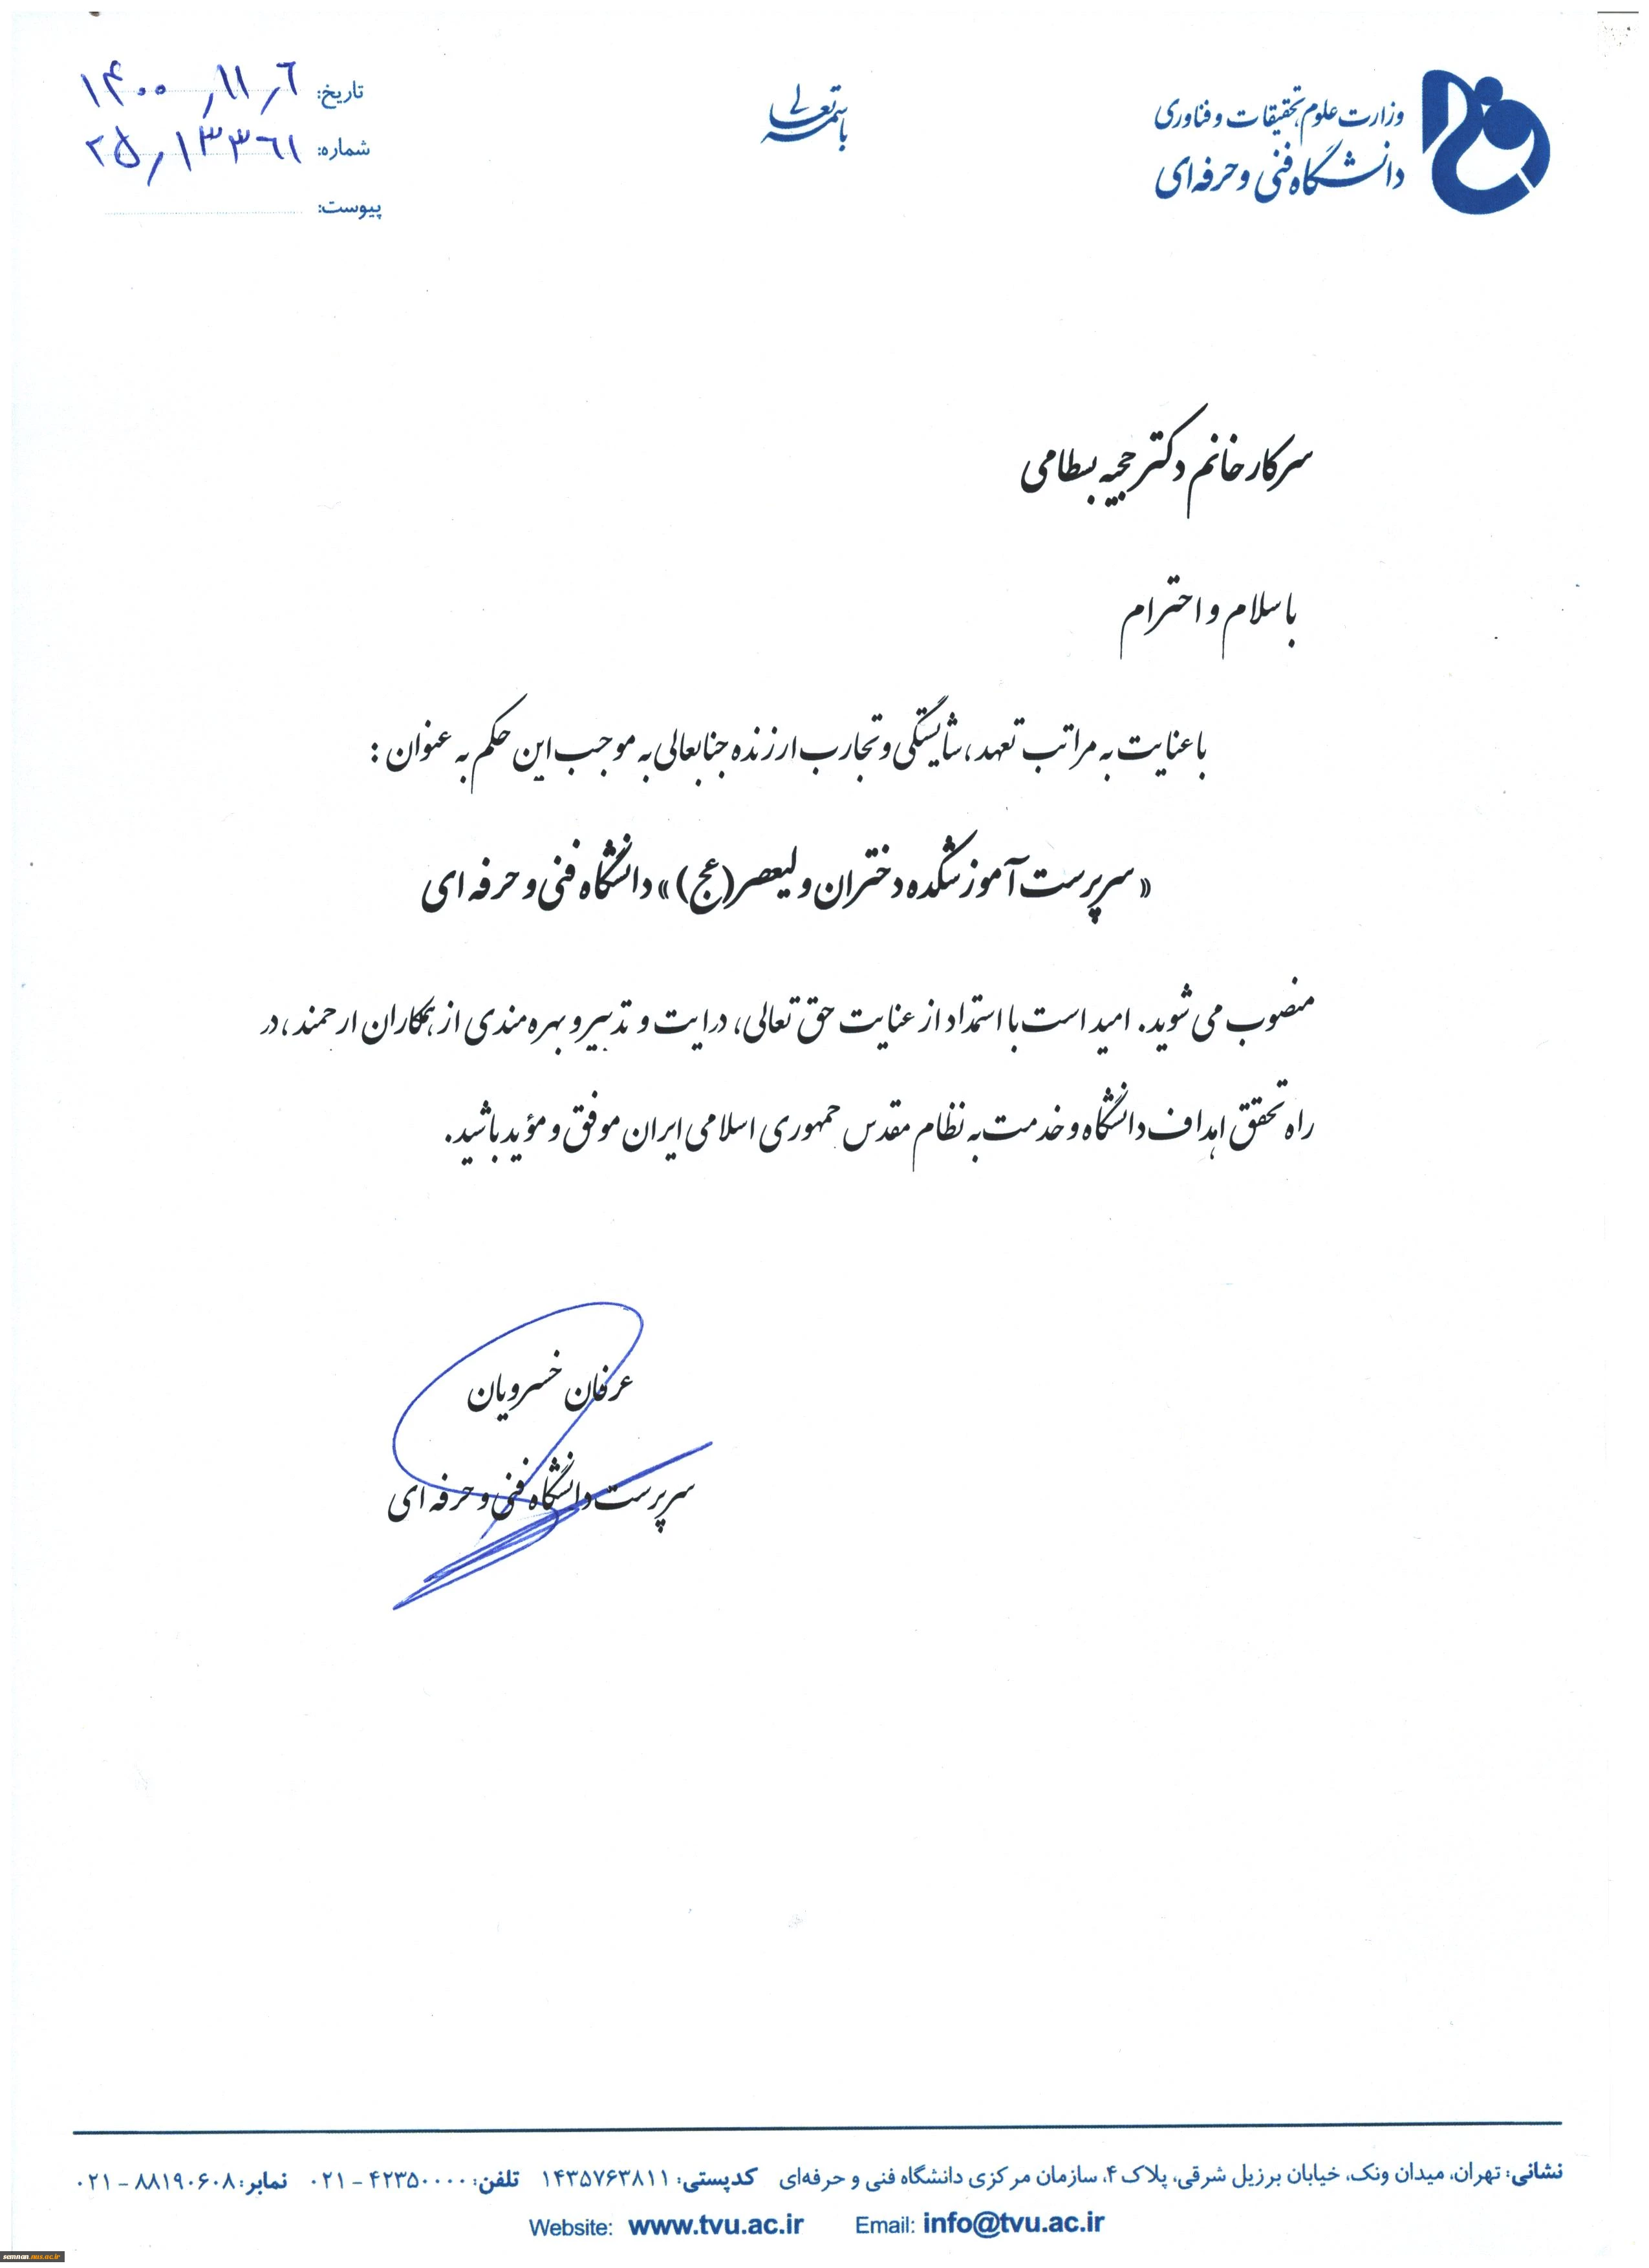 باسمه تعالی
وزارت علوم، تحقیقات و فناوری
دانشگاه فنی و حرفه‌ای
تاریخ: ۱۴۰۰/۱۱/۶
شماره: ۲۵/۱۳۳۶۱
پیوست:
سرکار خانم دکتر حجیه بسطامی
با سلام و احترام
با عنایت به مراتب تعهد، شایستگی و تجارب ارزنده جنابعالی به موجب این حکم به عنوان :
« سرپرست آموزشکده دختران ولیعصر(عج)» دانشگاه فنی و حرفه ای
منصوب می شوید. امید است با استمداد از عنایت حق تعالی، درایت و تدبیر و بهره مندی از همکاران ارجمند، در
راه تحقق اهداف دانشگاه و خدمت به نظام مقدس جمهوری اسلامی ایران موفق و مؤید باشید.
عرفان خسرویان
سرپرست دانشگاه فنی و حرفه ای
نشانی: تهران، میدان ونک، خیابان برزیل شرقی، پلاک ۴، سازمان مرکزی دانشگاه فنی و حرفه‌ای کدپستی: ۱۴۳۵۷۶۳۸۱۱ تلفن: ۴۲۳۵۰۰۰۰ – ۰۲۱ نمابر: ۸۸۱۹۰۶۰۸ – ۰۲۱
Website: www.tvu.ac.ir Email: info@tvu.ac.ir
semnan.nus.ac.ir